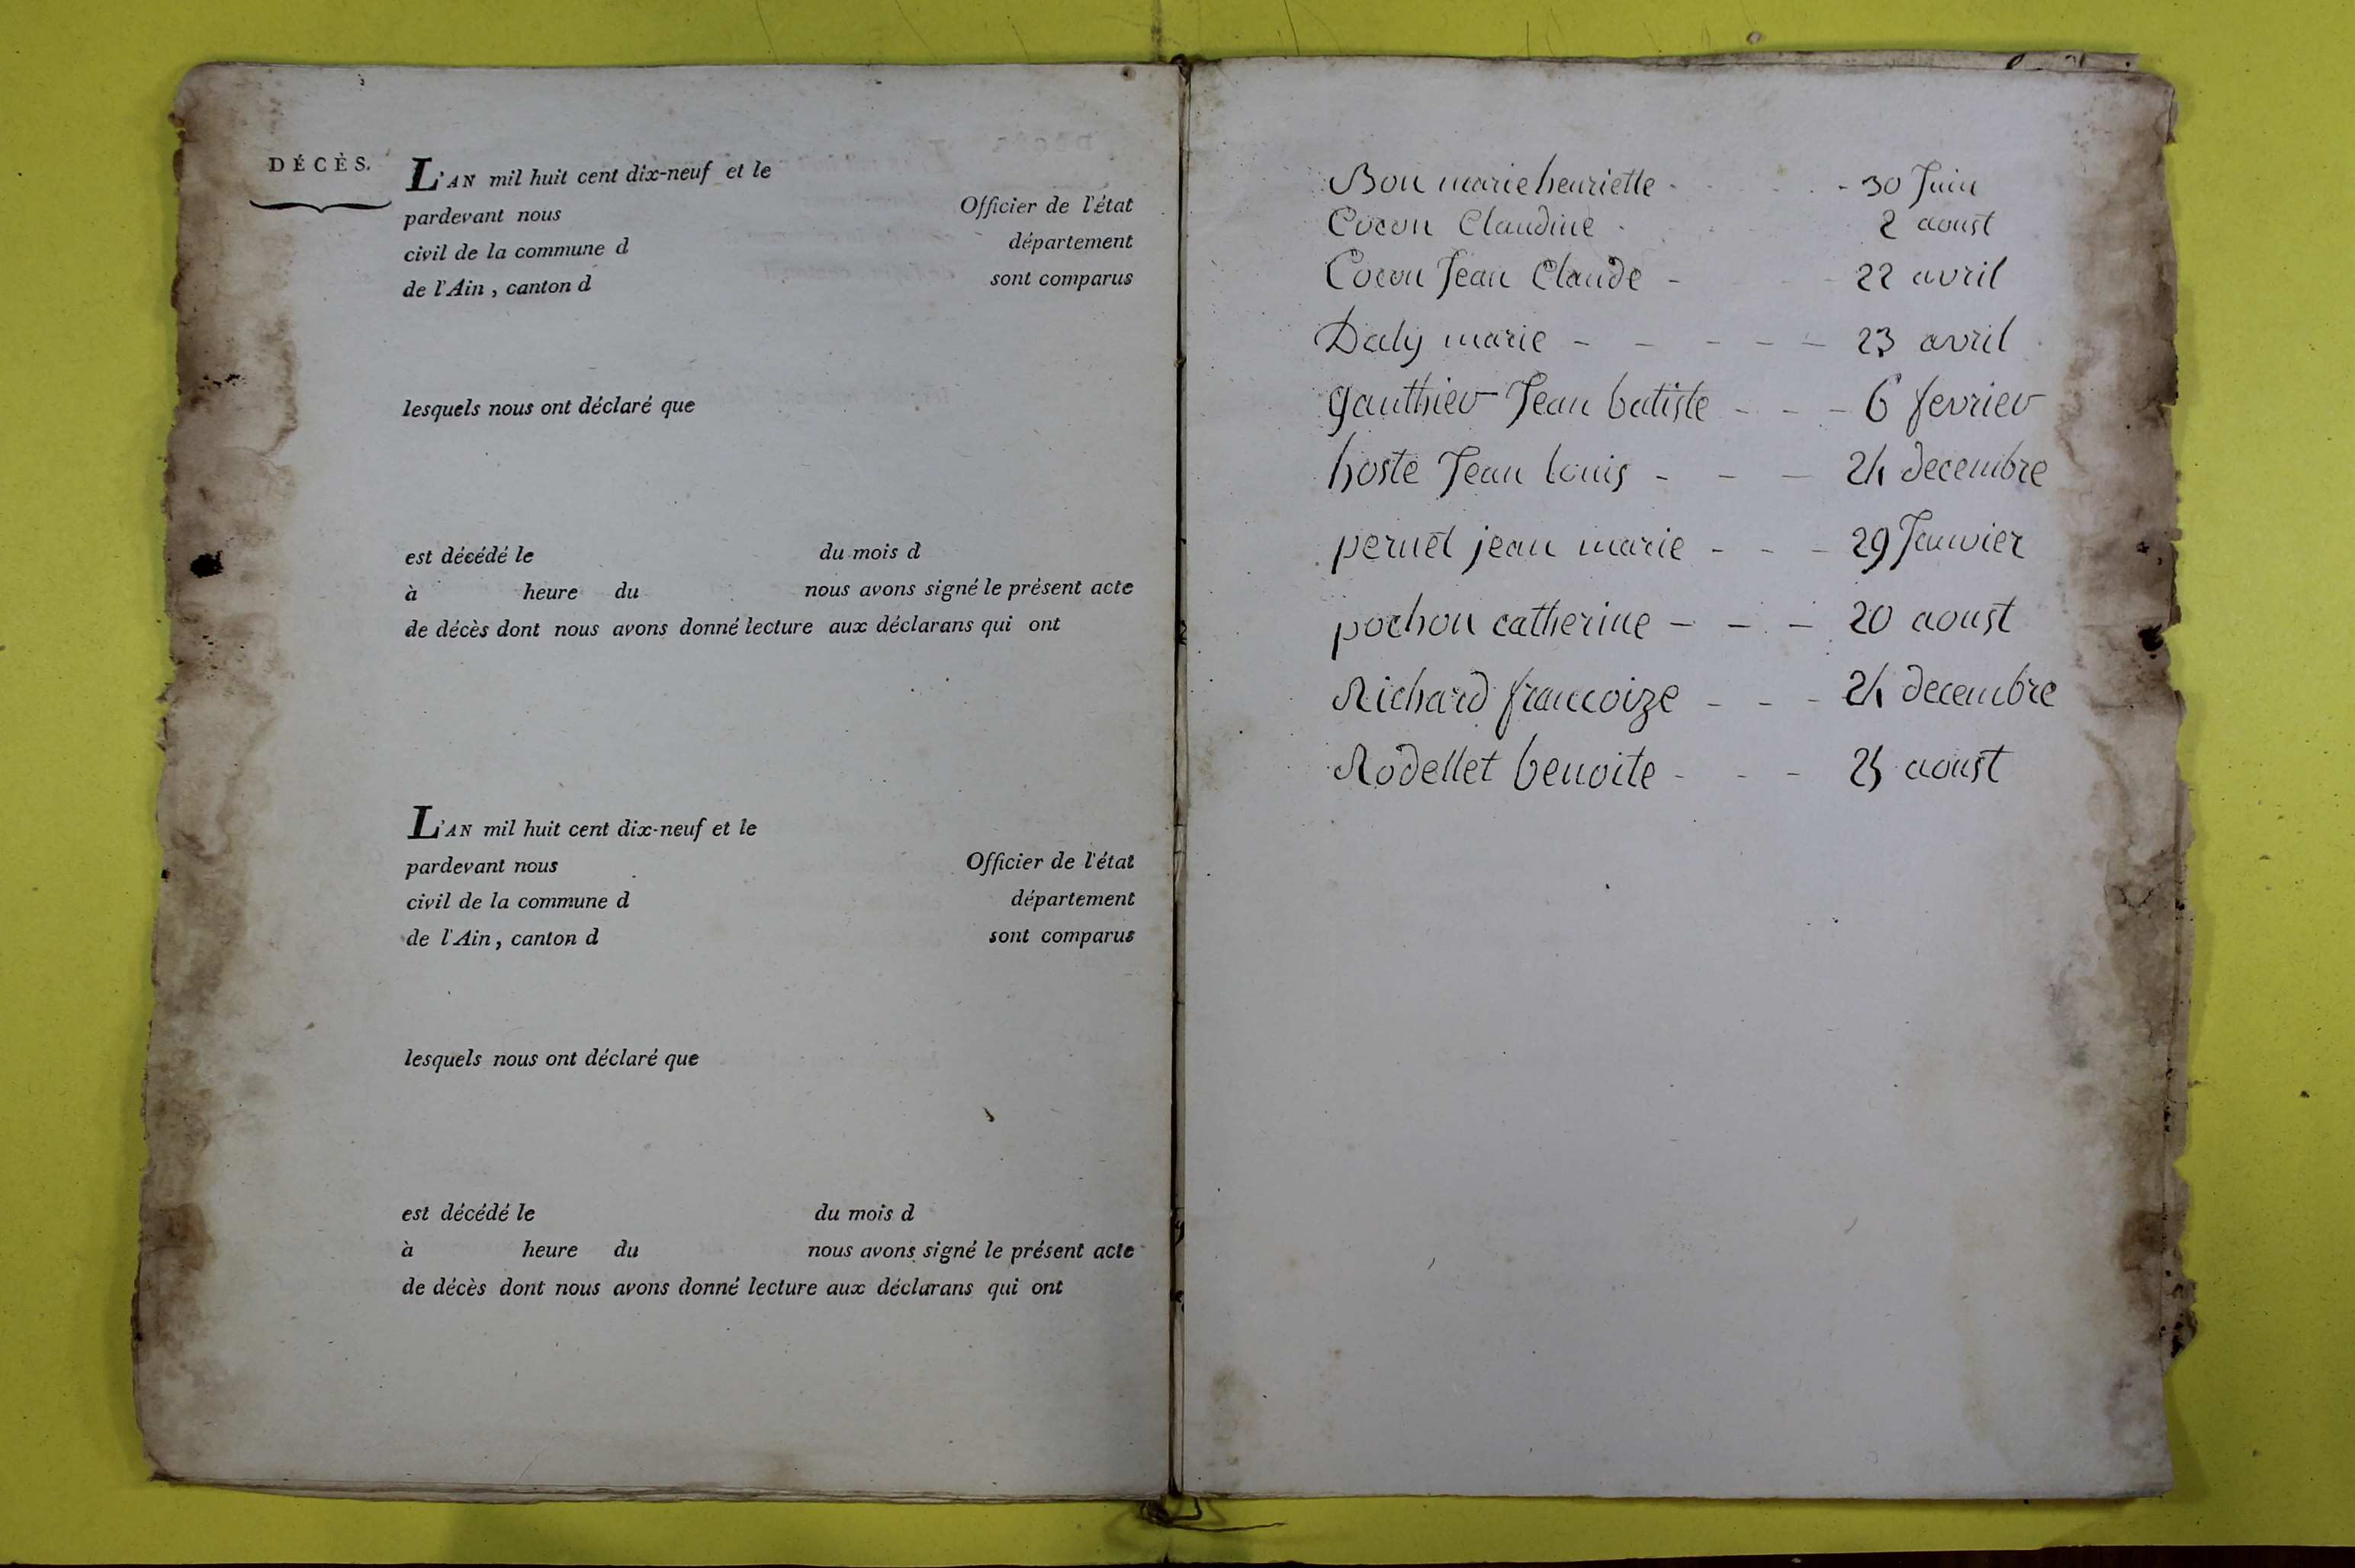 DÉCÈS.
L'AN mil huit cent dix-neuf et le
pardevant nous Officier de l'état
civil de la commune d département
de l'Ain, canton d sont comparus
lesquels nous ont déclaré que
est décédé le du mois d
à heure du nous avons signé le présent acte
de décès dont nous avons donné lecture aux déclarans qui ont
L'AN mil huit cent dix-neuf et le
pardevant nous Officier de l'état
civil de la commune d département
de l'Ain, canton d sont comparus
lesquels nous ont déclaré que
est décédé le du mois d
à heure du nous avons signé le présent acte
de décès dont nous avons donné lecture aux déclarans qui ont
Bon marie henriette - - 30 Juin
Cocon Claudine 2 aoust
Cocon Jean Claude - - 22 avril
Daly marie - - - - - 23 avril
gauthier Jean batiste - - - 6 fevrier
hoste Jean louis - - - 24 decembre
pernet jean marie - - - 29 Janvier
pochon catherine - - - 20 aoust
Richard francoize - - - 24 decembre
Rodellet benoite - - - 25 aoust